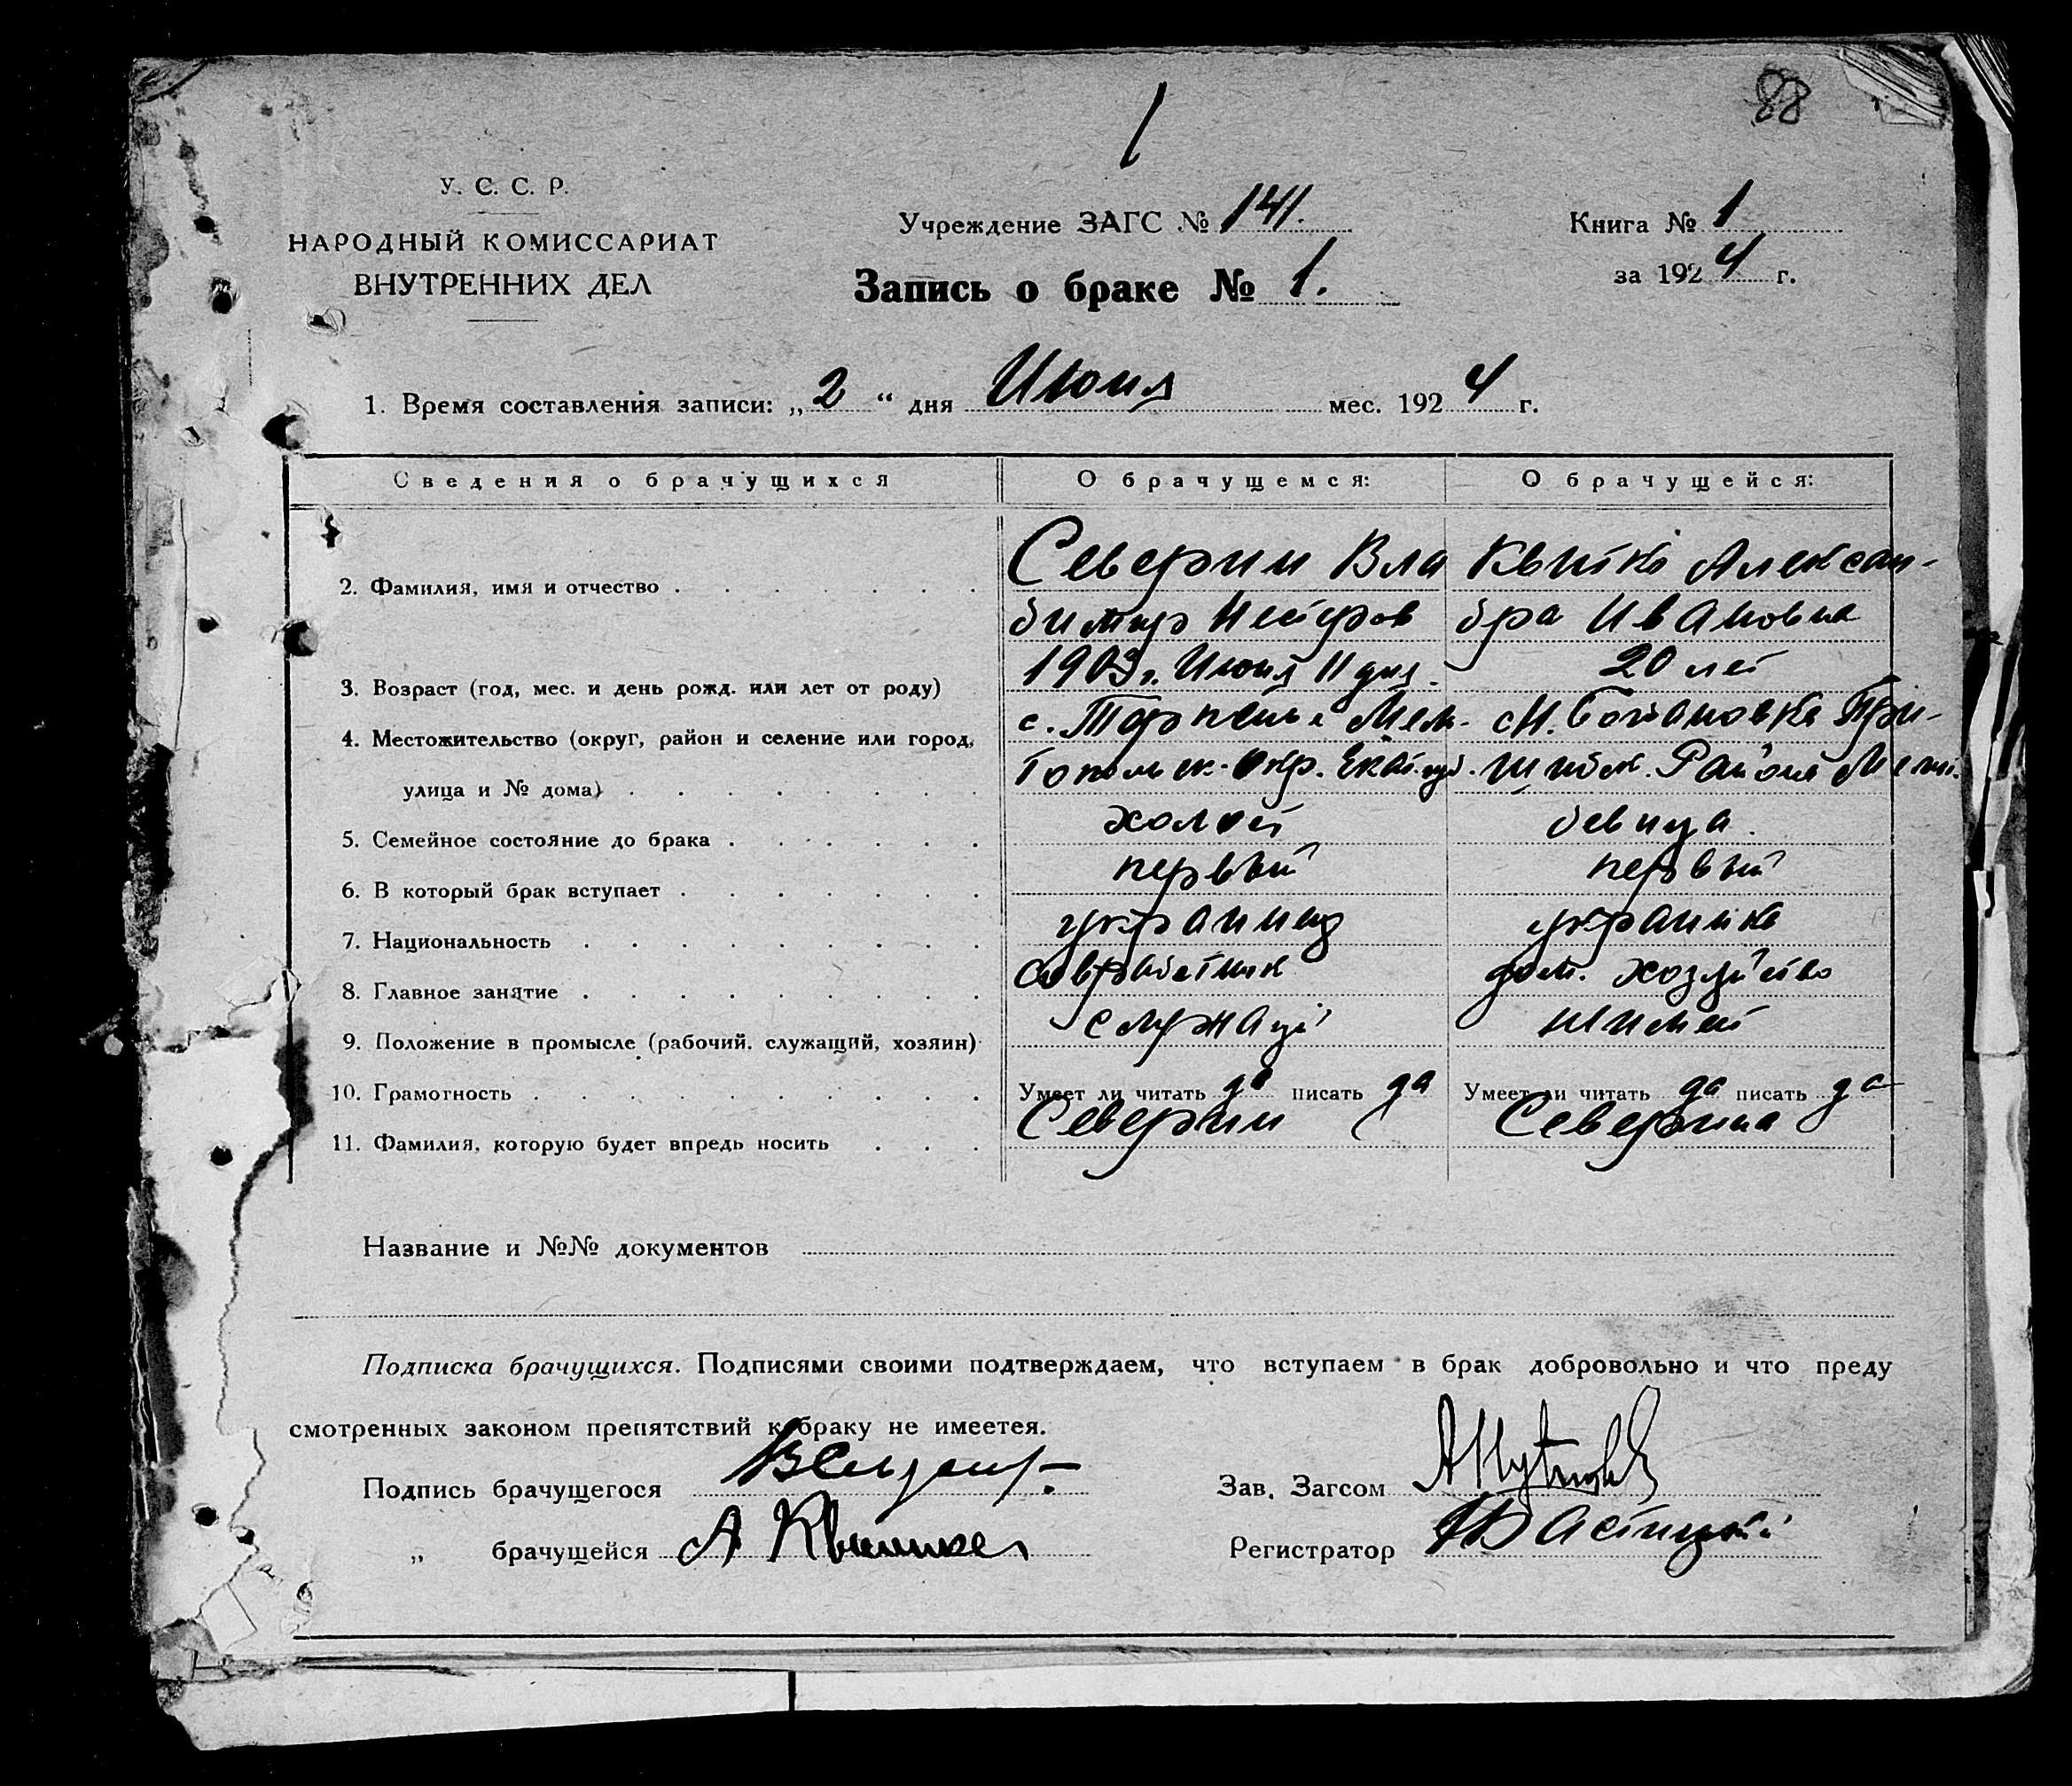 88
1
У. С. С. Р.
НАРОДНЫЙ КОМИССАРИАТ
ВНУТРЕННИХ ДЕЛ
Учреждение ЗАГС № 141.
Книга № 1
за 1924 г.
Запись о браке № 1.
1. Время составления записи: „2“ дня Июля мес. 1924 г.
Сведения о брачущихся О брачущемся: О брачущейся:
2. Фамилия, имя и отчество Северин Вла Квитко Алексан-
димир дра Ивановна
3. Возраст (год, мес. и день рожд. или лет от роду) 1903 г. 11 дня. 20 лет
4. Местожительство (округ, район и селение или город, с. Терпенье Мели- Ботановка При-
улица и № дома) топольск. Окр. Екат. губ. шибск. Района Мели.
5. Семейное состояние до брака холост девица
6. В который брак вступает первый первый
7. Национальность украинец украинка
8. Главное занятие Совработник дом. хозяйство
9. Положение в промысле (рабочий, служащий, хозяин) служащ
10. Грамотность Умеет ли читать да писать да Умеет ли читать да писать да
11. Фамилия, которую будет впредь носить Северин Северина
Название и №№ документов
Подписка брачущихся. Подписями своими подтверждаем, что вступаем в брак добровольно и что преду
смотренных законом препятствий к браку не имеетея.
Подпись брачущегося
Зав. Загсом
„ брачущейся А Квитко
Регистратор